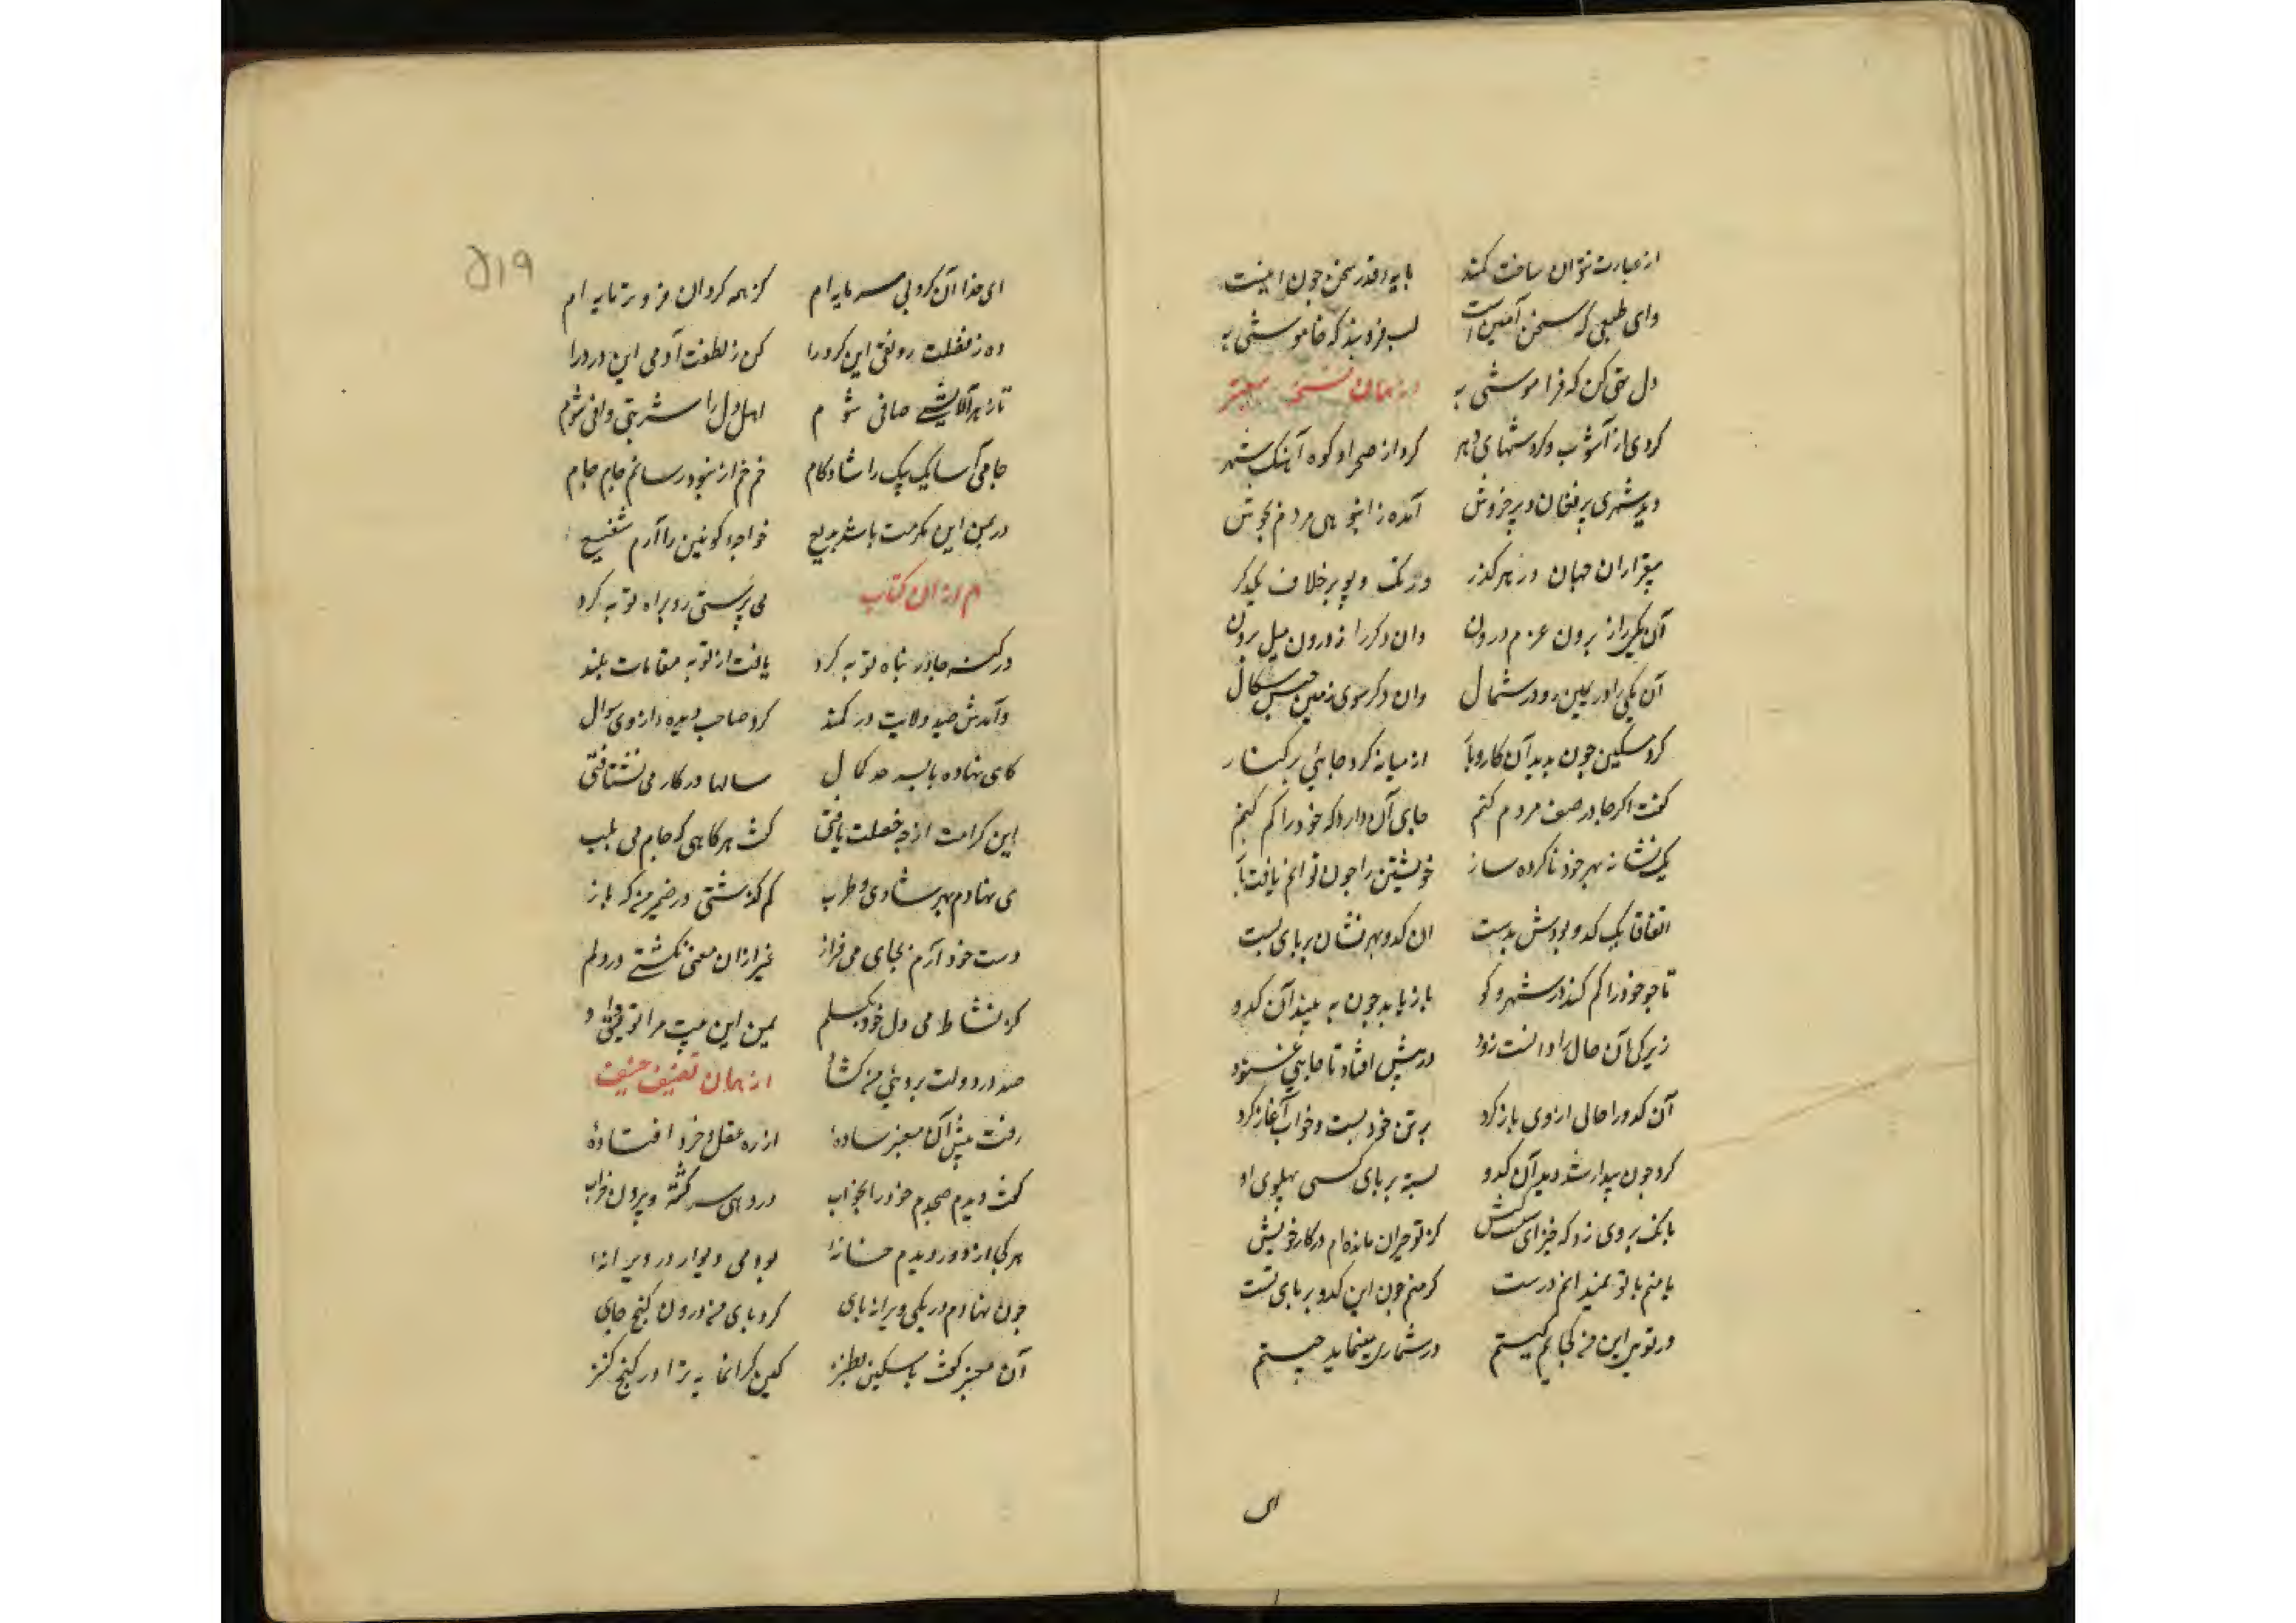 از عبارت نتوان ساخت کمند پایه قدر سخن چون اینست
وای طبعی که سخن آیین است لب فروبند که خاموشی به
دل تهی کن که فراموشی به از همان نسخه معتبر
کردی از آشوب و گردشهای دهر کرد از صحرا و کوه آهنک شهر
دید شهری پر فغان و پر خروش آمده ز انبوهی مردم بجوش
بیقراران جهان در هر گذر در تک و پو بر خلاف یکدگر
آن یکی را از برون عزم درون وان دگر را از درون میل برون
آن یکی را در یمین رو در شمال وان دگر سوی یمین جنبش سگال
کرد مسکین چون بدید آن کاروبار از میانه کرد جایی بر کنار
گفت اگر جا در صف مردم کنم جای آن دارد که خود را گم کنم
یک نشانه بهر خود ناکرده ساز خویشتن را چون توانم یافت باز
اتفاقا یک کدو بودش بدست آن کدو بهر نشان بر پای بست
تا چو خود را گم کند در شهر و کو باز یابد چون به بیند آن کدو
زیرکی آن حال را دانست زود در پیش افتاد تا جایی غنود
آن کدو را حالی از وی باز کرد بر تن خود بست و خواب آغاز کرد
کرد چون بیدار شد دید آن کدو بسته بر پای کسی پهلوی او
بانک بر وی زد که خیز ای سست کیش کز تو حیران مانده ام در کار خویش
یا منم یا تو نمیدانم درست گر منم چون این کدو بر پای تست
ور تویی این من کجایم کیستم در شماری مینیاید چیستم
ای
۵۱۹
ای خدا آن کرد بی سرمایه ام کز همه کردان فروتر پایه ام
ده ز فضلت رونقی این کرد را کن ز لطفت آدمی این درد را
تا ز هر آلایشی صافی شوم اهل دل را شربتی وافی شوم
جامی آسا یک بیک را شادکام خم خم از خود رسانم جام جام
در یمن این مکرمت باشد بدیع خواجه کونین را آرم شفیع
هم از ان کتاب می پرستی رو براه توبه کرد
در کنف جا در پناه توبه کرد یافت از توبه مقامات بلند
وآمدش صید ولایت در کمند کرد صاحب دیده از وی سوال
کای نهاده پا بسرحد کمال سالها در کار می نشتافتی
این کرامت از چه خصلت یافتی گفت هر گاهی که جام می بلب
می نهادم بهر شادی و طرب کم گذشتی در ضمیر من که باز
دست خود آرم بجای می فراز غیر ازان معنی نگشتی در دلم
کز نشاط می دل خود بگسلم یمن این نیت مرا توفیق داد
صد در دولت بروی من گشاد از همان تصنیف حنیف
رفت پیش آن معبر ساده از ره عقل و خرد افتاده
گفت دیدم صبحدم خود را بخواب در دهی سرگشته و بیرون خراب
هر کجا از دور دیدم خانه بود بی دیوار در ویرانه
چون نهادم در یکی ویرانه پای کرد پای من درون گنج جای
آن معبر گفت با مسکین بطنز کین گرانمایه ترا در گنج کنز